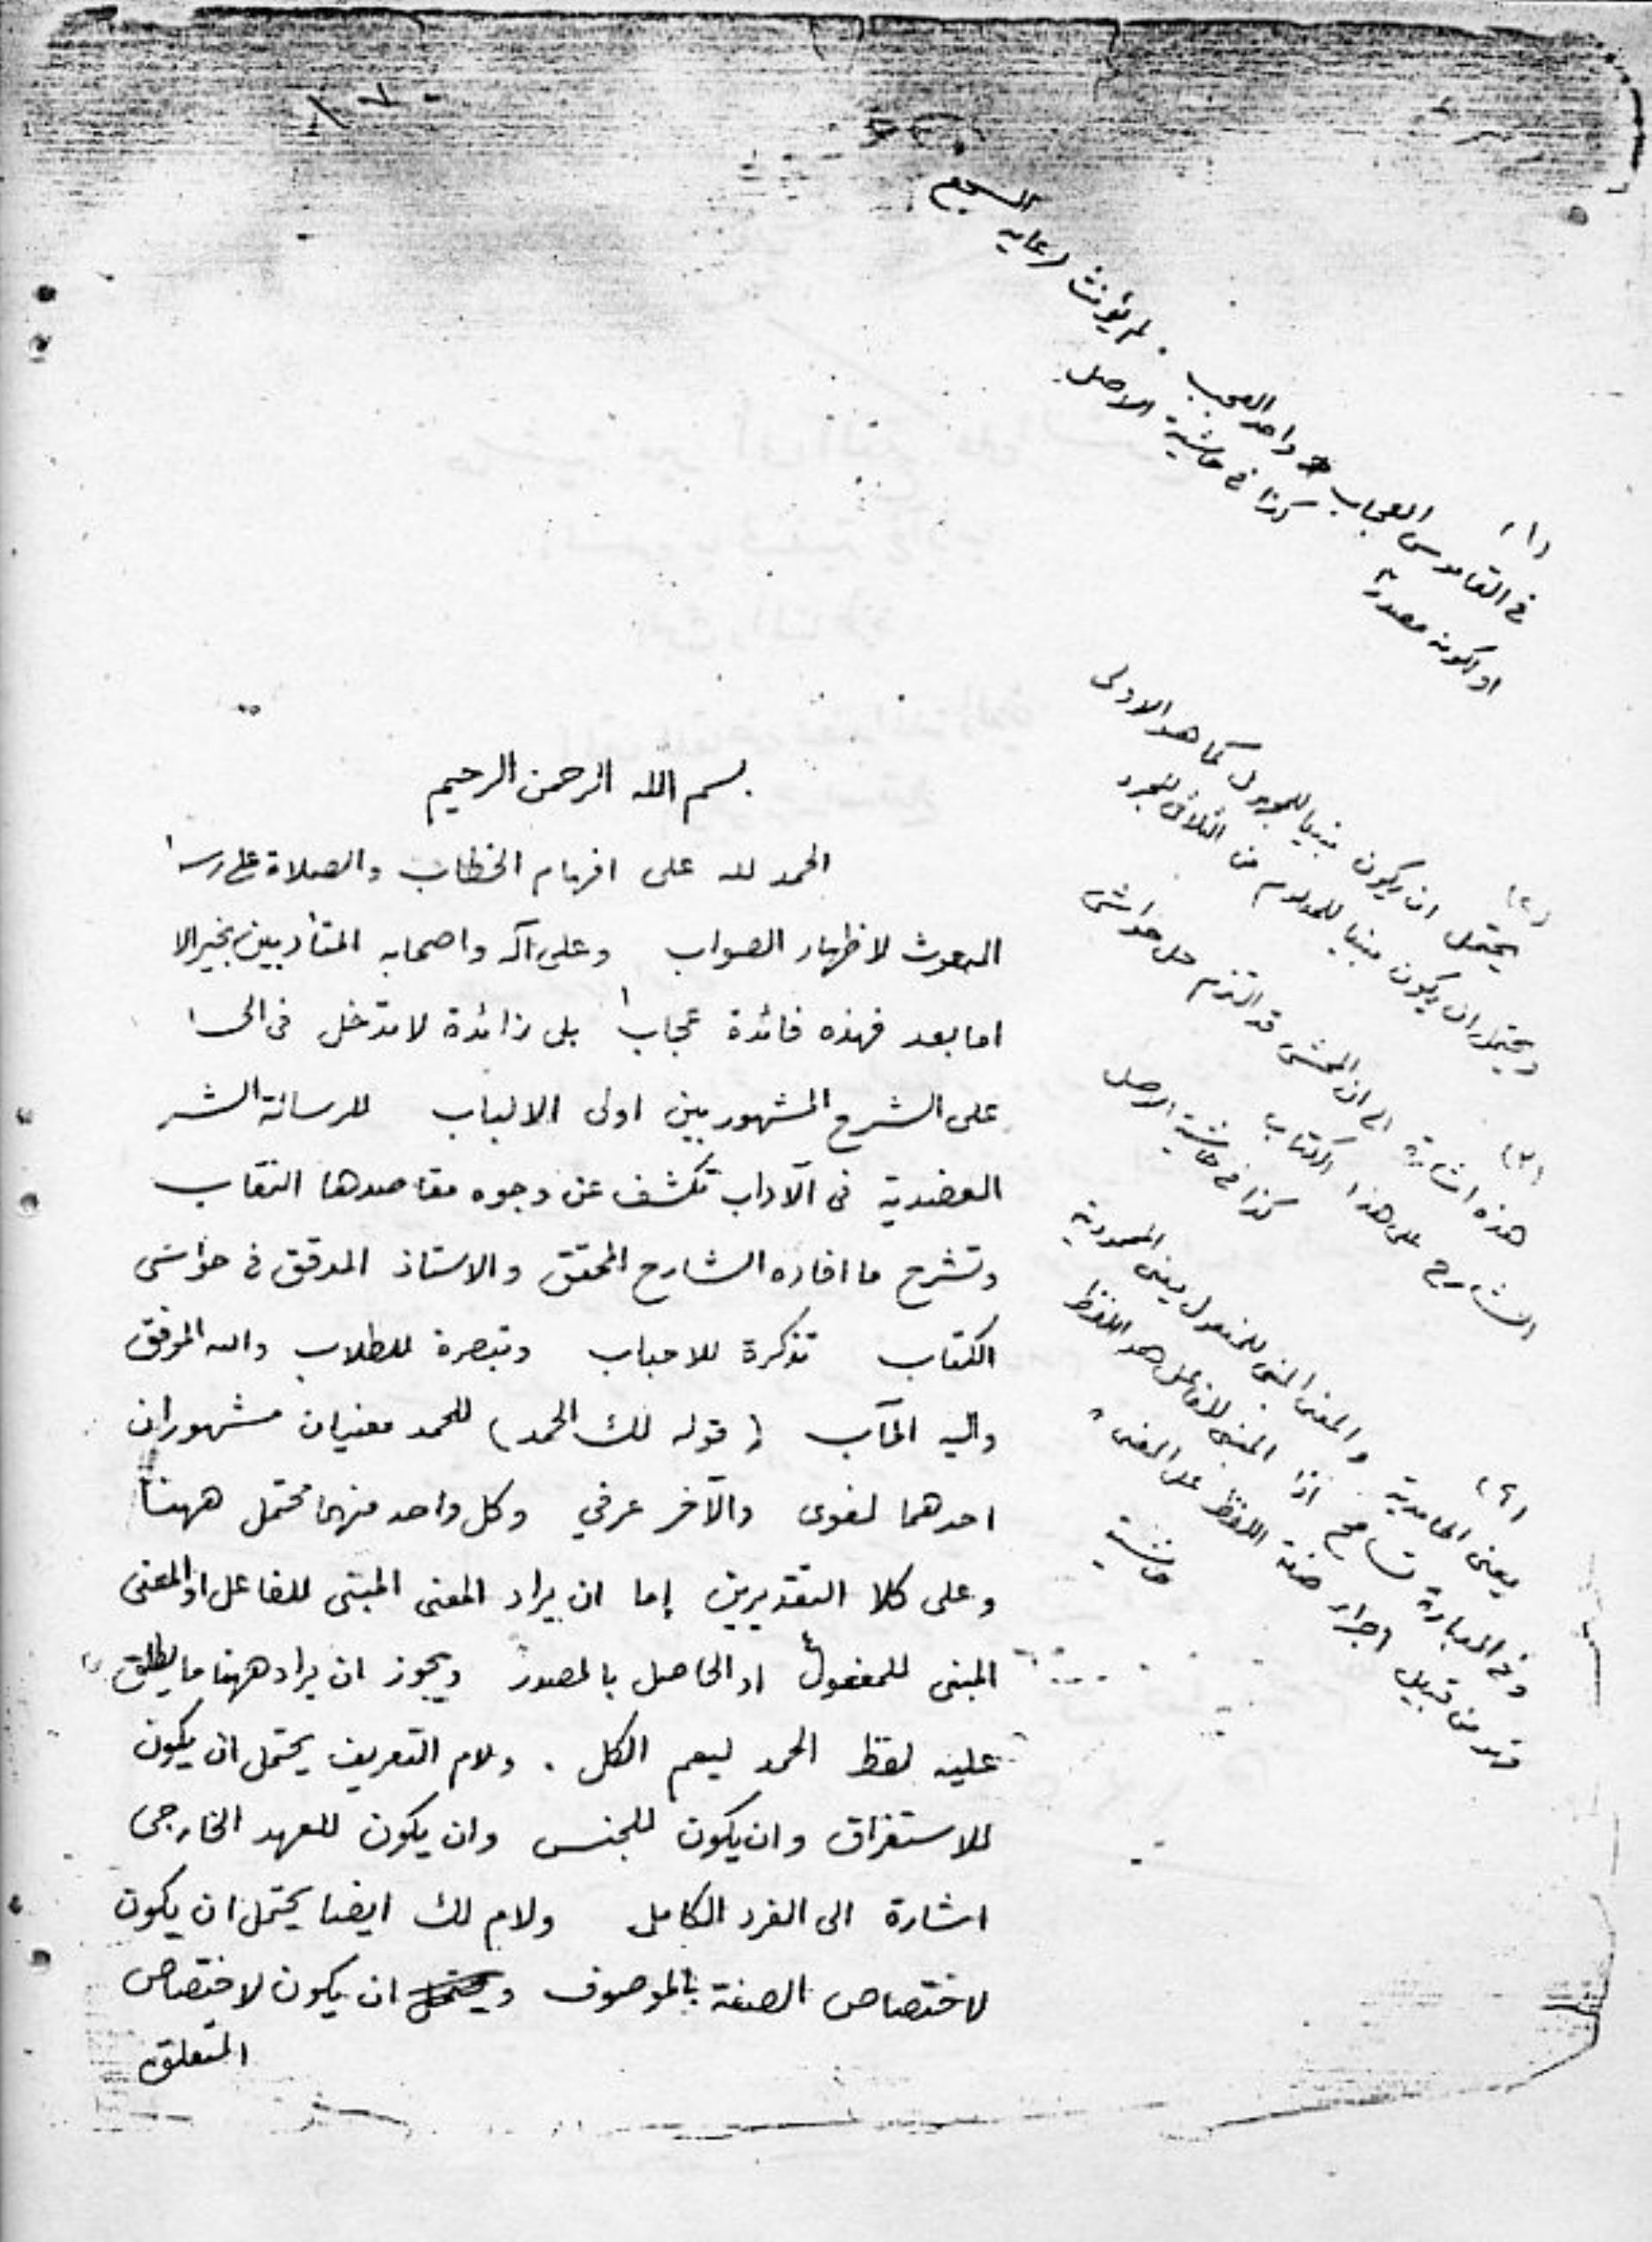 بسم الله الرحمن الرحيم
الحمد لله على افهام الخطاب والصلاة على رسو
المبعوث لاظهار الصواب وعلى آله واصحابه المتأدبين بخير الا
اما بعد فهذه فائدة عجاب١ بل زائدة لا تدخل فى الح
على الشرح المشهور بين اولى الالباب للرسالة الشر
العضدية فى الآداب تكشف عن وجوه مقاصدها النقاب
وتشرح ما افاده الشارح المحقق والاستاذ المدقق فى حواشى
الكتاب تذكرة للاحباب وتبصرة للطلاب والله الموفق
واليه المآب (قوله لك الحمد) للحمد معنيان مشهوران
احدهما لغوى والآخر عرفي وكل واحد منهما محتمل ههنا
وعلى كلا التقديرين إما ان يراد المعنى المبنى للفاعل او المعنى
المبنى للمفعول٤ او الحاصل بالمصدر ويجوز ان يراد ههنا ما يطلق
عليه لفظ الحمد ليعم الكل . ولام التعريف يحتمل ان يكون
للاستغراق وان يكون للجنس وان يكون للعهد الخارجى
اشارة الى الفرد الكامل ولام لك ايضا يحتمل ان يكون
لاختصاص الصفة بالموصوف ويحتمل ان يكون لاختصاص
المتعلق
(١)
فى القاموس العجاب واحد العجب . لم يؤنث رعاية السجع
او لكونه مصدرا
كذا فى حاشية الاصل
(٢)
يحتمل ان يكون مبنيا للمجهول كما هو الاولى
ويحتمل ان يكون مبنيا للمعلوم من الثلاثى المجرد
(٣)
هذه اشارة الى ان المحشى قد التزم حل حواشى
الشارح على هذا الكتاب
كذا فى حاشية الاصل
(٤)
يعنى الحامدية والمعنى المبنى للمفعول يعنى المحمودية
وفى العبارة تسامح اذا المبنى للفاعل هو اللفظ
من قبيل اجراء صفة اللفظ على المعنى
حاشية